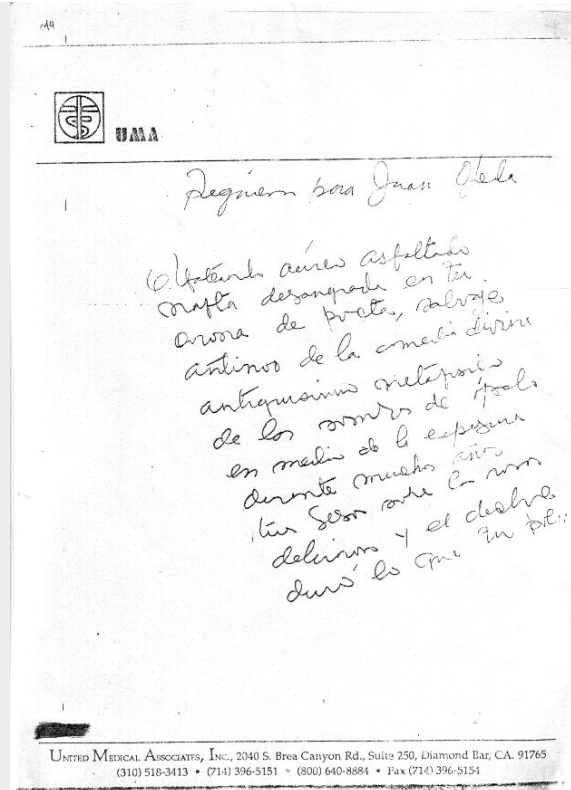 UMA
Requiem para Juan Ojeda
aéreo asfaltado
nafta desangrada en tu
aroma de poeta, salvaje
antinoo de la comedia divina
antiquísimo metafísico
de los
en medio de la espesura
durante muchos años
tus sobre las rosas
deliciosas y el
duró lo que un
UNITED MEDICAL ASSOCIATES, INC., 2040 S. Brea Canyon Rd., Suite 250, Diamond Bar, CA. 91765
(310) 518-3413 • (714) 396-5151 • (800) 640-8884 • Fax (714) 396-5154